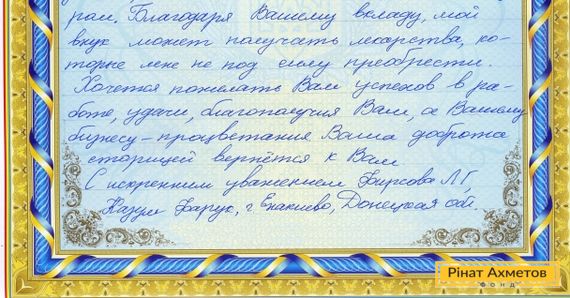 ром. Благодаря Вашему вкладу, мой
внук может получать лекарства, ко-
торые мне не под силу преобрести.
Хочется пожелать Вам успехов в ра-
боте, удачи, благополучия Вам, а Вашему
бизнесу – процветания. Ваша доброта
сторицей вернётся к Вам
С искренним уважением Фирсова Л.Г,
г. Енакиево, Донецкая обл.
Рінат Ахметов
ФОНД